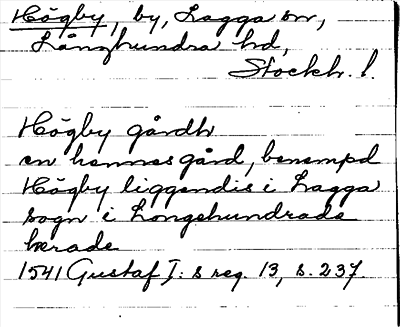 Högby, by, Lagga sn,
Långhundra hd,
Stockh. l.
Högby gårdh
en hennes gård, benempd
Högby liggendis i Lagga
sogn i Longehundrade
herade
1541 Gustaf I:s reg. 13, s. 237.